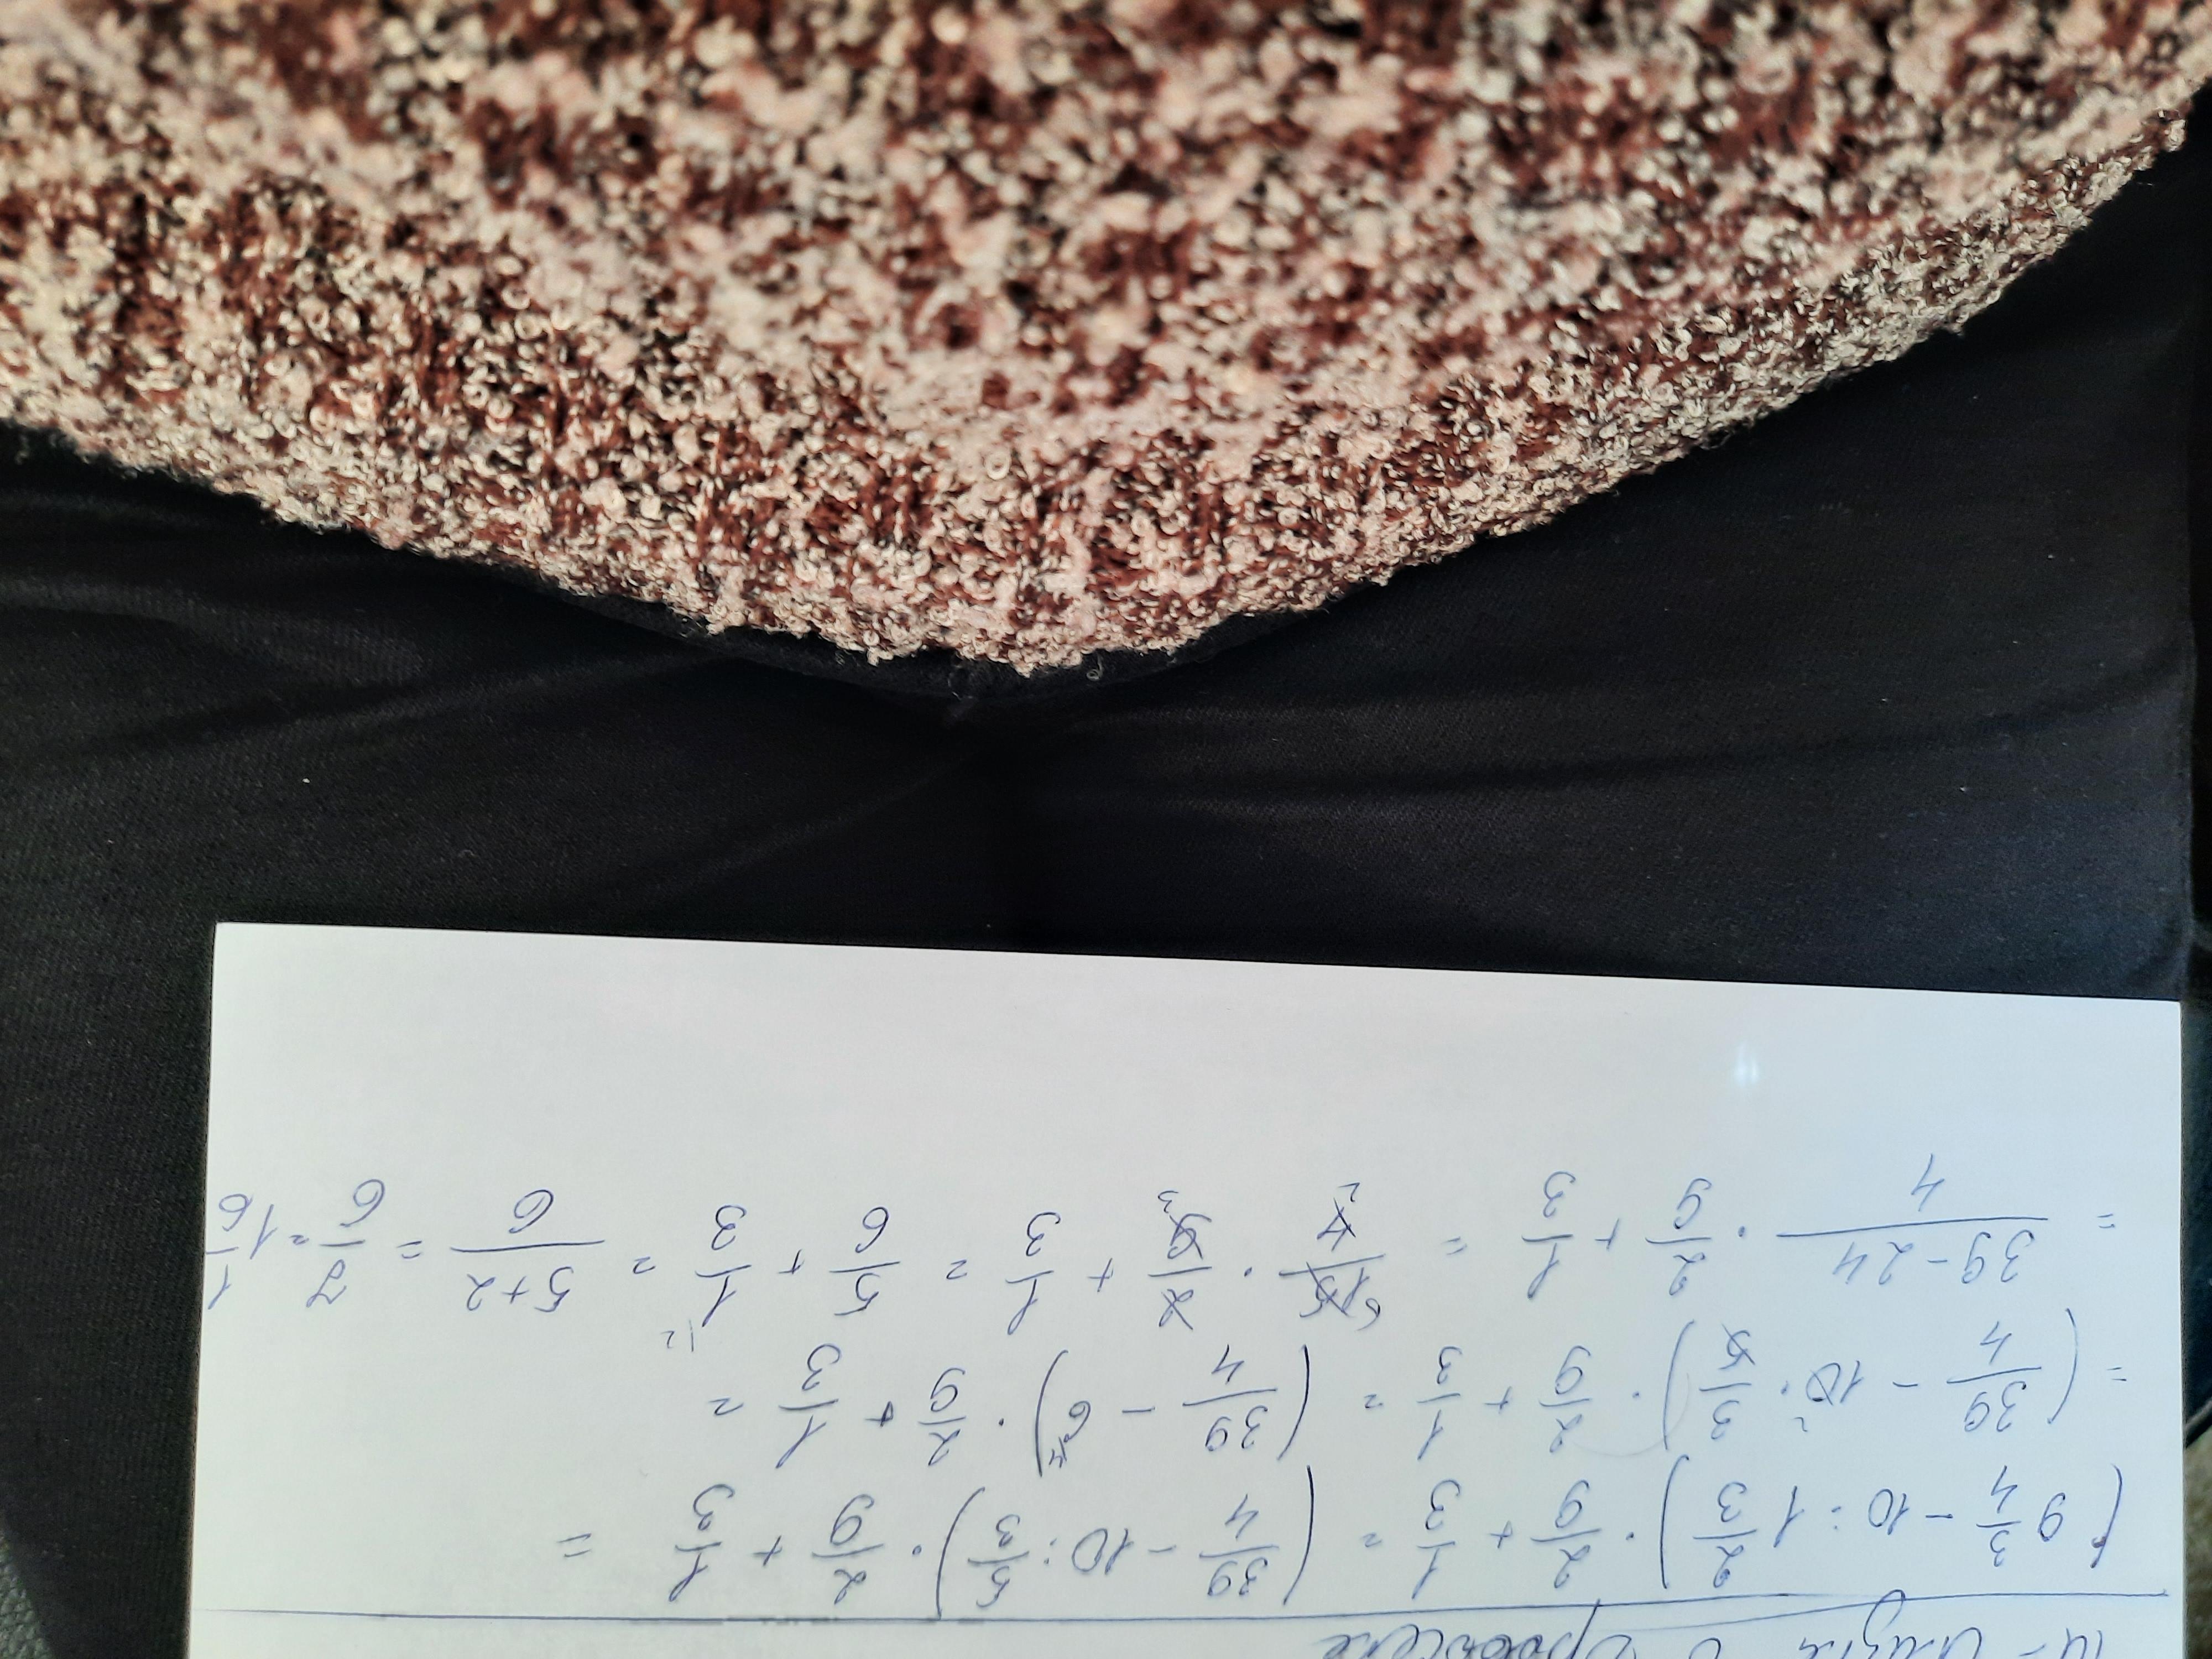 (9 3/4 - 10 : 1 2/3) · 2/9 + 1/3 = (39/4 - 10 : 5/3) · 2/9 + 1/3 =
= (39/4 - 10 · 3/5) · 2/9 + 1/3 = (39/4 - 6) · 2/9 + 1/3 =
= 39-24/4 · 2/9 + 1/3 = 15/4 · 2/9 + 1/3 = 5/6 + 1/3 = 5+2/6 = 7/6 = 1 1/6